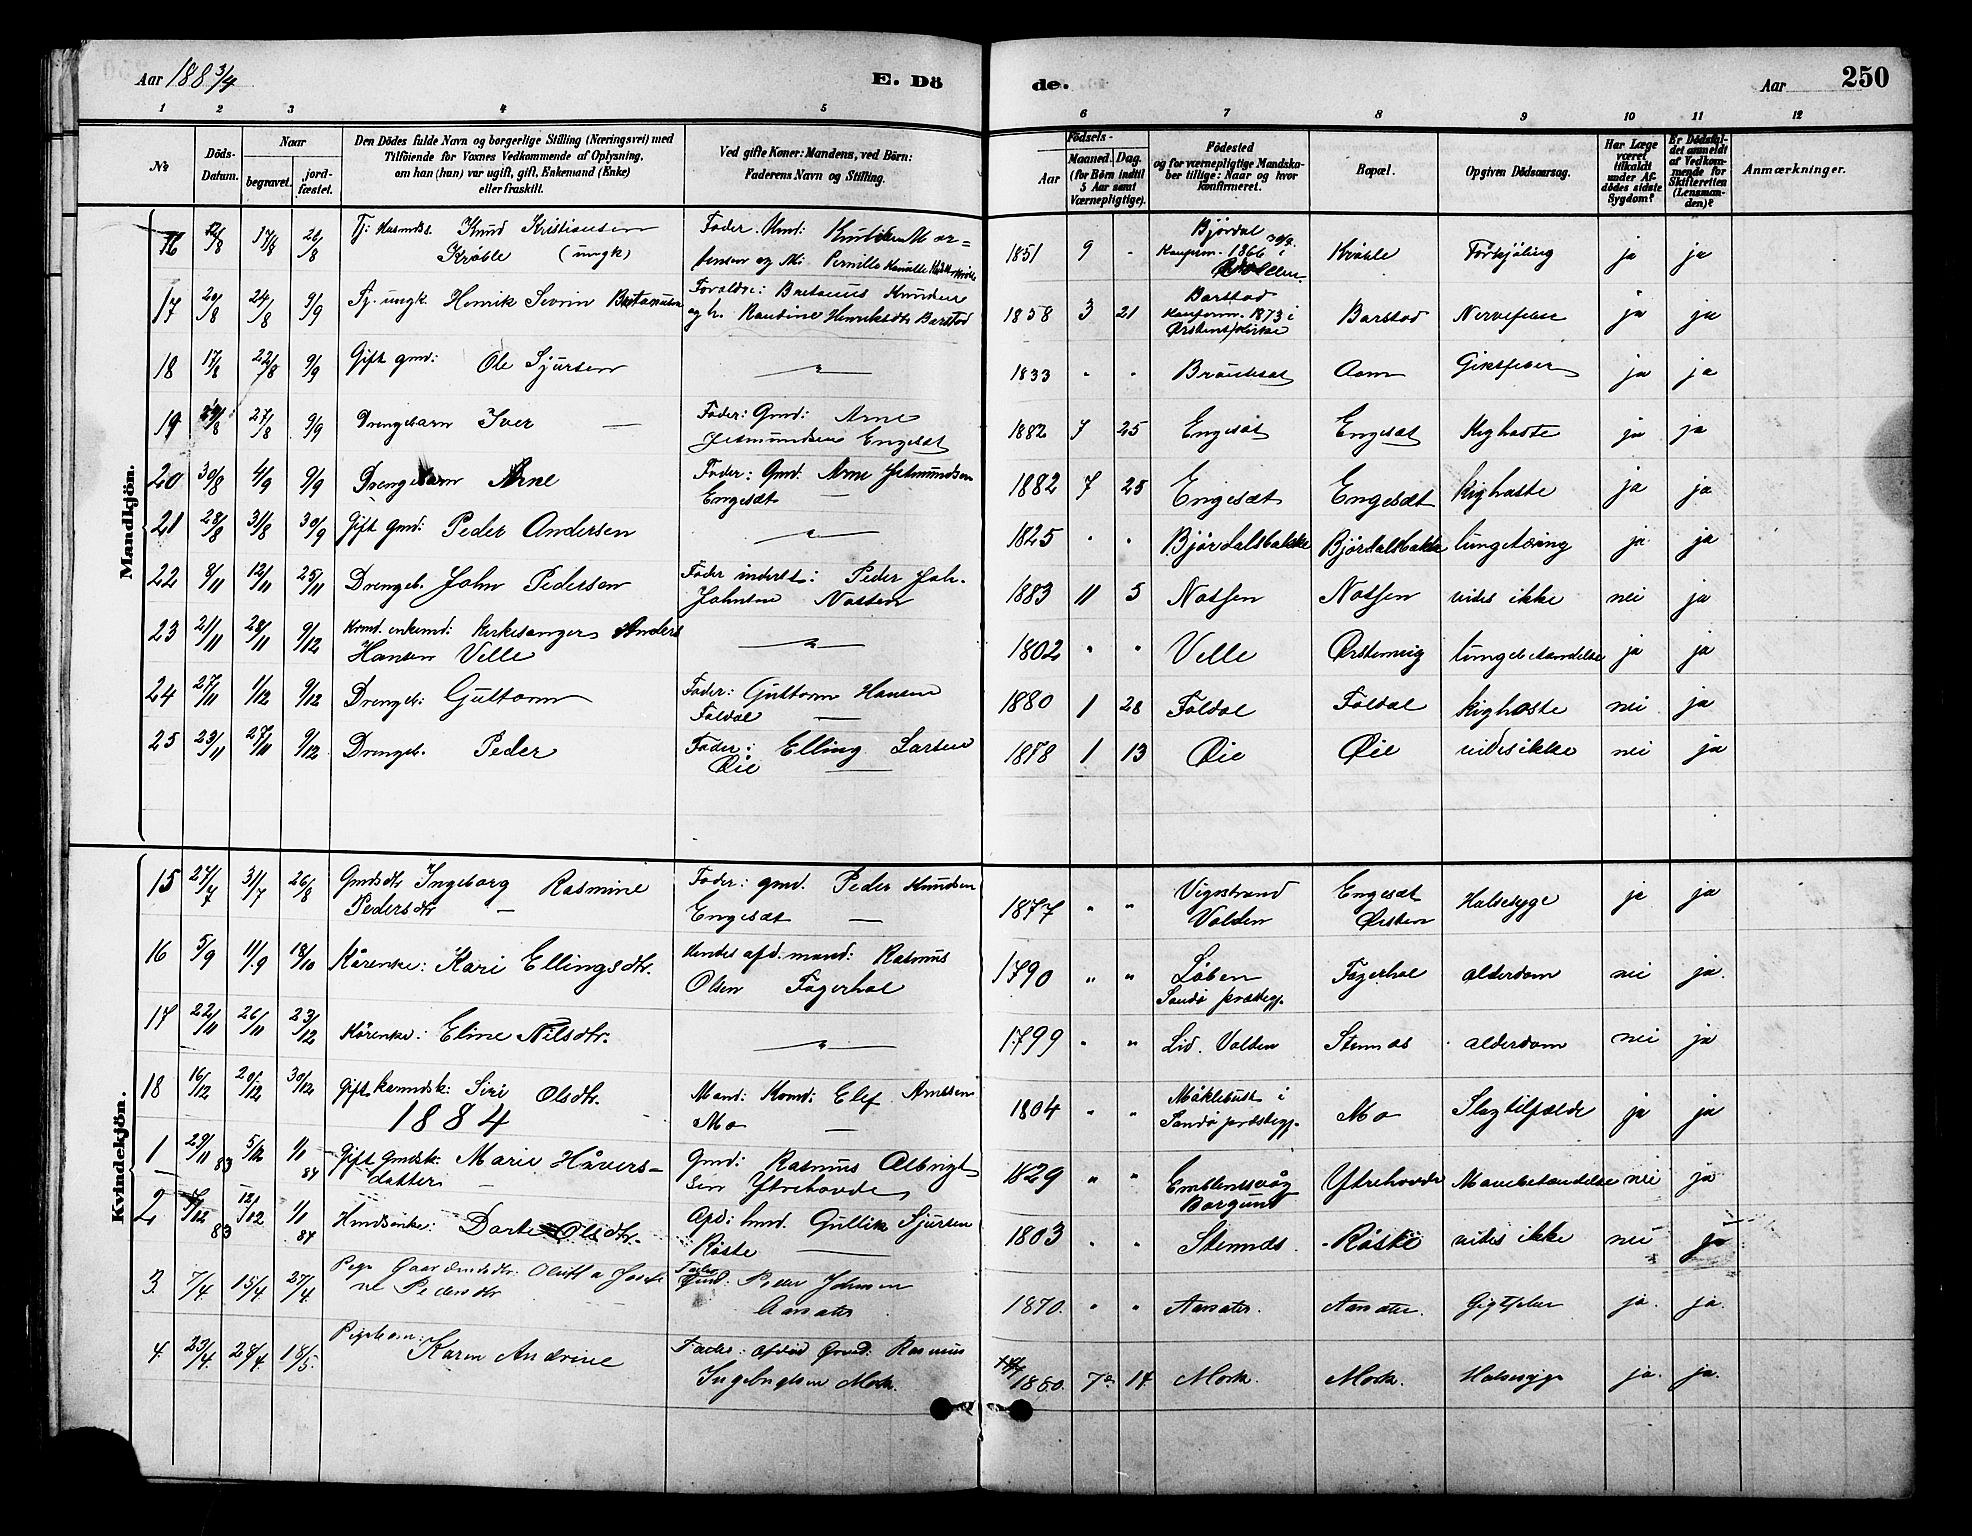 Aar 188 3/4
E. Dö
de.
Aar
250
1 2 3 4 5 6 7 8 9 10 11 12
No
Döds-Datum.
Naar
begravet.
jord-fæstet.
Den Dödes fulde Navn og borgerlige Stilling (Næringsvei) med
Tilföiende for Voxnes Vedkommende af Oplysning,
om han (hun) var ugift, gift, Enkemand (Enke)
eller fraskilt.
Ved gifte Koner: Mandens, ved Börn:
Faderens Navn og Stilling.
Födsels-
Aar
Maaned. Dag.
(for Börn indtil
5 Aar samt
Værnepligtige).
Födested
og for værnepligtige Mandska-
ber tillige: Naar og hvor
konfirmeret.
Bopæl.
Opgiven Dödsaarsag.
Har Læge
været
tilkaldt
under Af-
dödes sidste
Sygdom?
Er Dödsfal-
det anmeldt
af Vedkom-
mende for
Skifteretten
(Lensman-
den)?
Anmærkninger.
Mandkjön.
16 12/8 17/8 26/8 Knud Kristiansen Krøvle (ungk) Fader 1851 9 - Bjørdal Konfirm. 1866 ja ja
17 20/8 24/8 9/9 ungk. Henrik Sevrin Bretanusen Foraldre: Bretanus Knudsen og h. Henriksdtr Barstad 1858 3 21 Barstad Konfirm. 1873 i Ørstens Kirke Barstad Nervefeber ja ja
18 17/8 22/8 9/9 Gift gmd: Ole Sjursen " 1833 " " Aam Giktfeber ja ja
19 29/8 27/8 9/9 Drengebarn Iver — Fader: Gmd: Arne Jetmundsen Engesæt 1882 7 25 Engesæt Engesæt Kighoste ja ja
20 30/8 4/9 9/9 Drengebarn Arne Fader: Gmd. Arne Jetmundsen Engesæt — 1882 7 25 Engesæt Engesæt Kighoste ja ja
21 28/8 31/8 30/9 Gift gmd: Peder Andersen " 1825 " " Bjørdalsbakke Bjørdalsbakke lungetæring ja ja
22 8/11 12/11 25/11 Drengeb. John Pedersen Fader inderst: Peder Joh. Johnsen Nossen 1883 11 5 Nossen Nossen vides ikke nei ja
23 21/11 28/11 9/12 Kmd. enkemd: Kirkesanger Anders Hansen Velle " 1802 " " Velle Ørstenvig lungebetændelse ja ja
24 27/11 1/12 9/12 Drengeb: Guttorm Fader: Guttorm Hansen Foldal — 1880 1 28 Foldal Foldal Kighoste nei ja
25 23/11 27/11 9/12 Drengeb. Peder Fader: Elling Larsen Øie — 1878 1 13 Øie Øie vides ikke nei ja
Kvindekjön.
15 27/7 31/7 26/8 Gmdsdtr Ingeborg Rasmine Pedersdtr — Fader: gmd. Peder Knudsen Engesæt — 1877 " " Vigsstrand Volden Engesæt Ørsten Halsesyge ja ja
16 5/9 11/9 18/10 Kårenke: Kari Ellingsdtr. Hendes afd. mand: Rasmus Olsen Fagerhol 1790 " " Løben Sandø præstegj. Fagerhol alderdom nei ja.
17 22/11 26/11 23/12 Kårenke: Eline Nilsdtr. " 1799 " " Lid. Volden Stennæs alderdom nei ja
18 16/12 20/12 30/12 Gift Siri Olsdtr. Mand: Kmd: Elef Arnesen Mo — 1804 " " Måklebust i Sandø prdstegj. Mo Slagtilfælde ja ja
1884
1 29/11 83 5/12 1/1 84 Gift gmdsk: Marie Håversdatter — Gmd: Rasmus Albrigtsen Ytrehovde 1829 " " Emblemsvåg Borgund Ytrehovde Mavebetændelse nei ja
2 12 83 12/12 1/1 84 Husmdsenke: Dorte Olsdtr. Afd: hmd. Gullik Sjursen Røste — 1803 " " Stennæs. Røske vides ikke nei ja
3. 7/4 15/4. 27/4. Pige Gaardmdsdtr: Pedersdtr Fader Gmd. Peder Johnsen Aarsæter 1870. " " Aarsæter. Aarsæter. Gigtfeber ja. ja.
4. 23/4. 28/4. 18/5. Pigebarn: Karen Andrine Fader: afdød Gmd: Rasmus Ingebrigtsen Mork. 1880. 7 14 Mork. Mork. Halsesyge ja. ja.